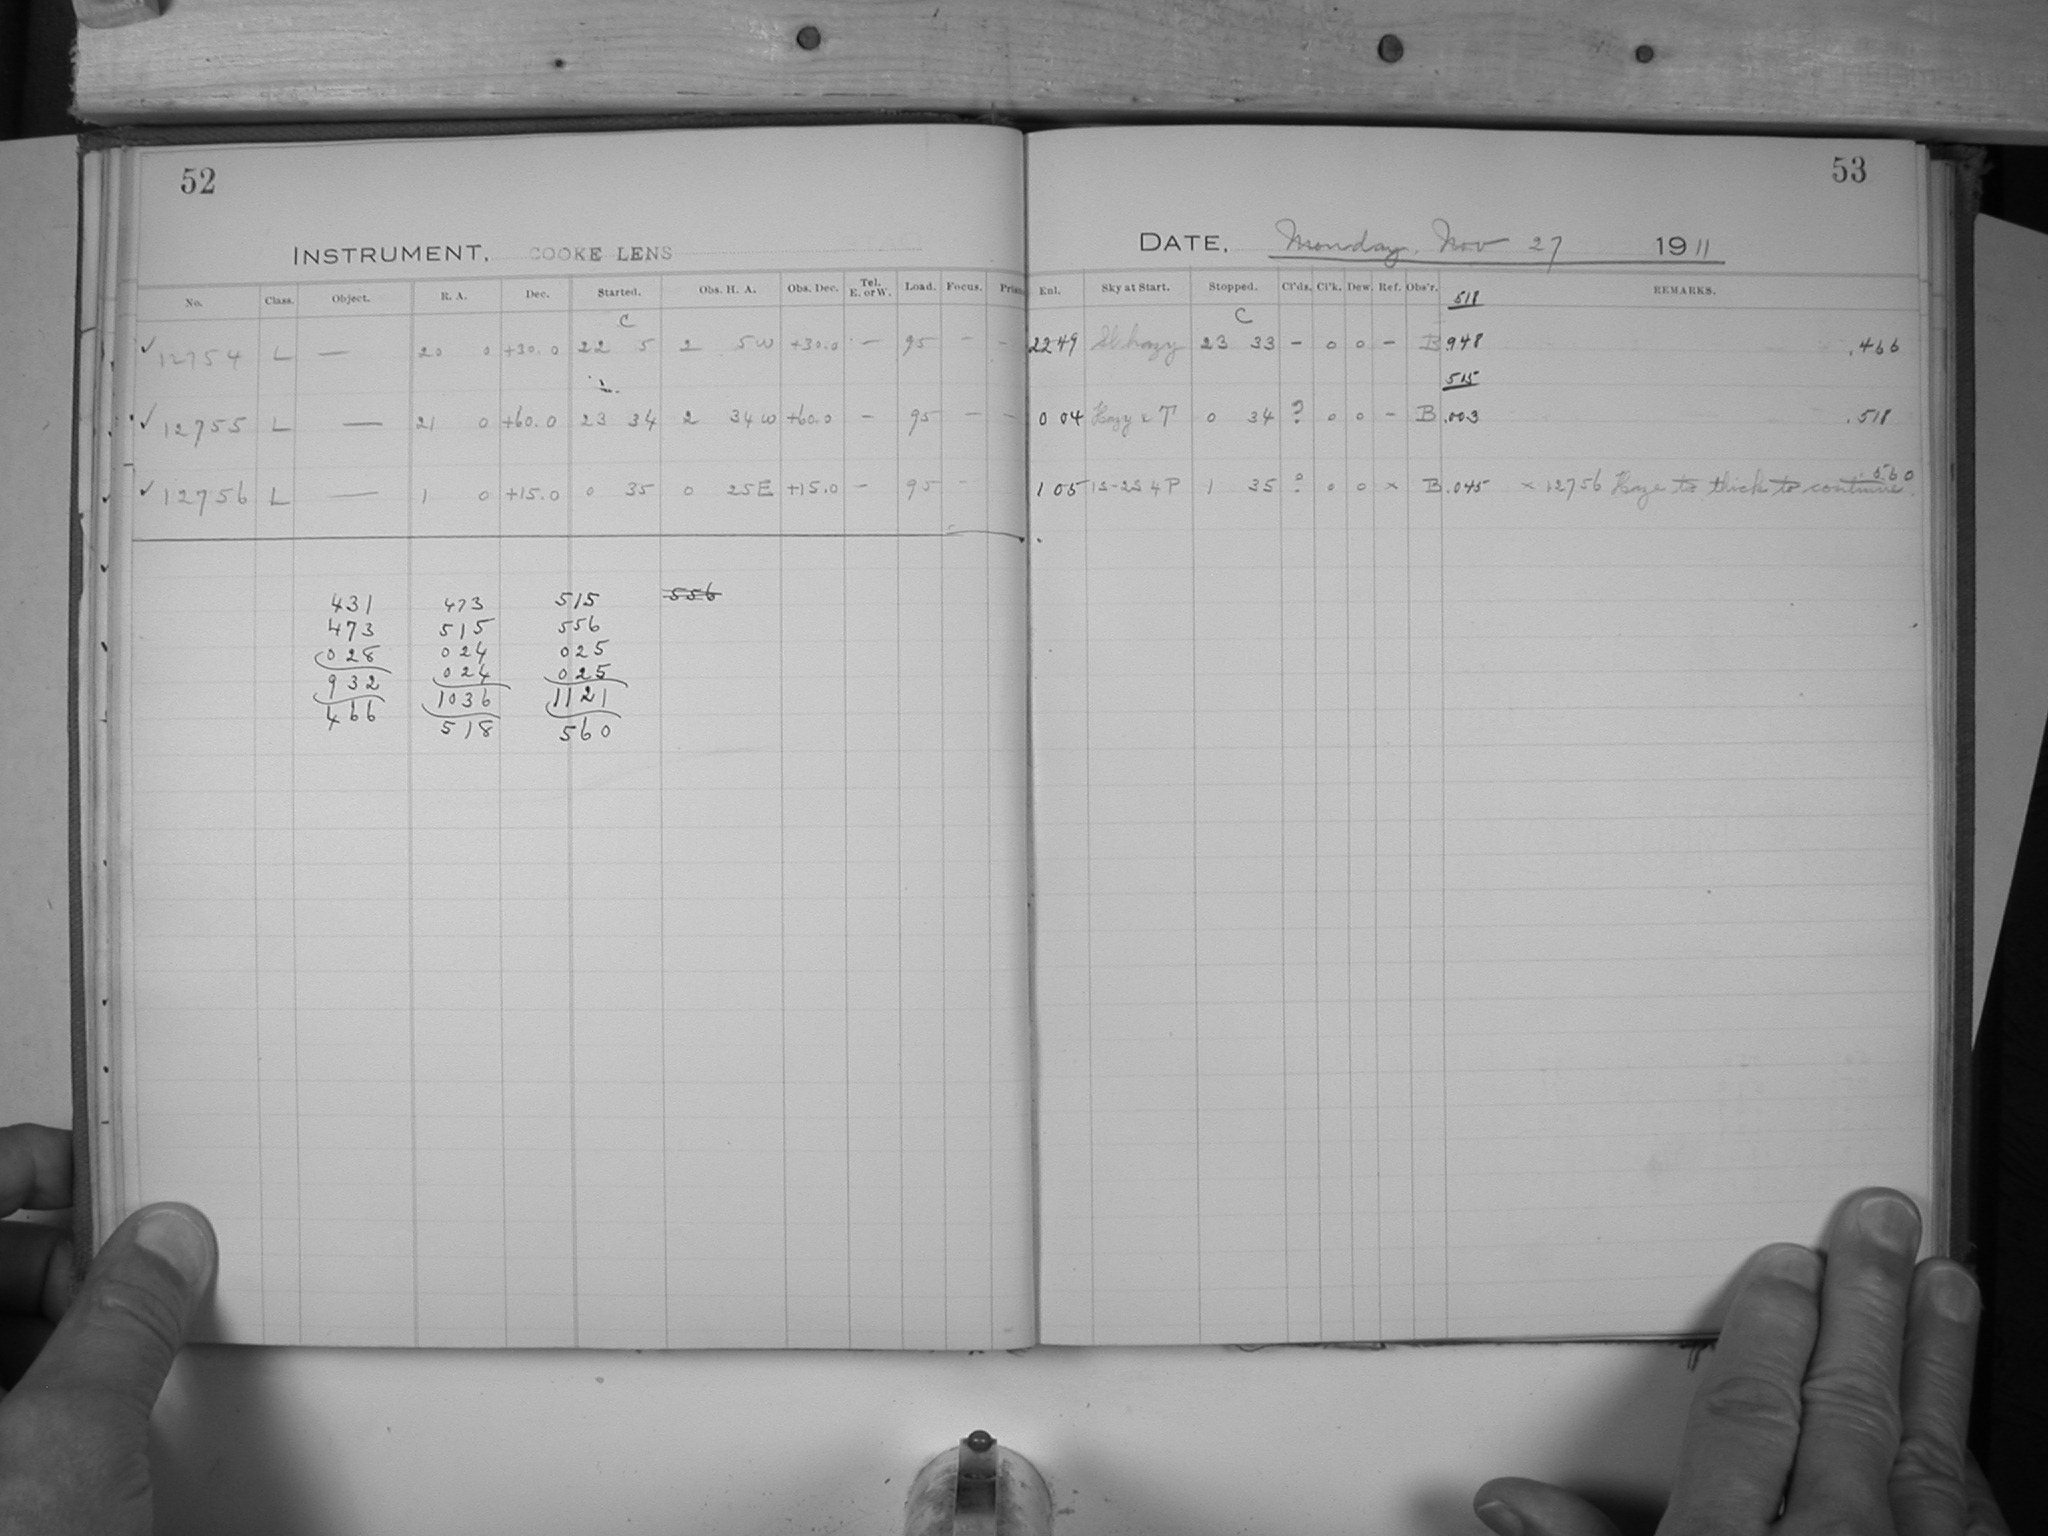 52
INSTRUMENT. COOKE LENS
No. Class. Object. R. A. Dec. Started. Obs. H. A. Obs. Dec. Tel. E. or W. Load. Focus. Prism
C
✓ 12754 L — 20 0 +30.0 22 5 2 5W +30.0 — 95 — —
✓ 12755 L — 21 0 +60.0 23 34 2 34W +60.0 — 95 — —
✓ 12756 L — 1 0 +15.0 0 35 0 25E +15.0 — 95 —
431 473 515 556
473 515 556
028 024 025
932 024 025
466 1036 1121
518 560
53
DATE. Monday. Nov 27 1911
Enl. Sky at Start. Stopped. Cl'ds. Cl'k. Dew. Ref. Obs'r. REMARKS.
518
C
2249 Sl. hazy 23 33 — 0 0 — B 948 .466
515
0 04 Hazy & T 0 34 ? 0 0 — B .003 .518
1 05 1S-2S 4P 1 35 ? 0 0 × B .045 × 12756 Haze to thick to continue. .560